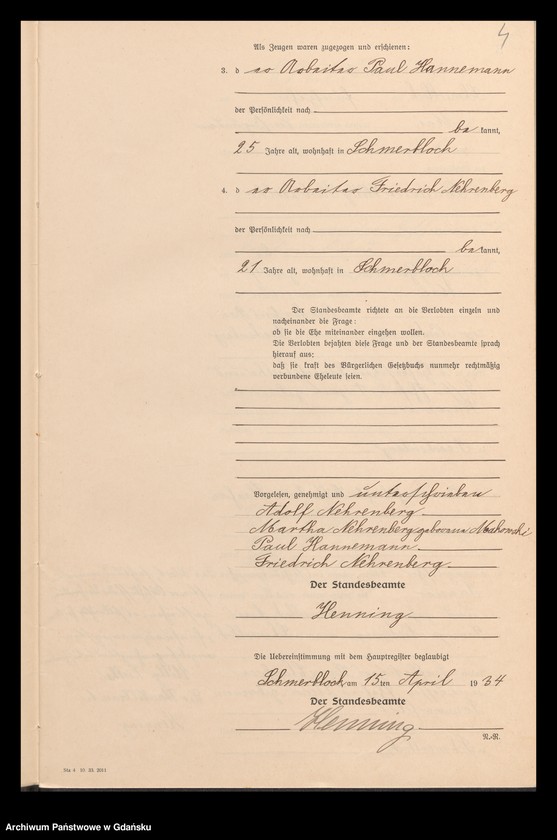 4
Als Zeugen waren zugezogen und erschienen:
3. der Arbeiter Paul Hannemann
der Persönlichkeit nach
bekannt,
25 Jahre alt, wohnhaft in Schmerblock
4. der Arbeiter Friedrich Nehrenberg
der Persönlichkeit nach
bekannt,
21 Jahre alt, wohnhaft in Schmerblock
Der Standesbeamte richtete an die Verlobten einzeln und
nacheinander die Frage:
ob sie die Ehe miteinander eingehen wollen.
Die Verlobten bejahten diese Frage und der Standesbeamte sprach
hierauf aus:
daß sie kraft des Bürgerlichen Gesetzbuchs nunmehr rechtmäßig
verbundene Eheleute seien.
Vorgelesen, genehmigt und unterschrieben
Adolf Nehrenberg
Martha Nehrenberg geborene Makowski
Paul Hannemann
Friedrich Nehrenberg
Der Standesbeamte
Henning
Die Uebereinstimmung mit dem Hauptregister beglaubigt
Schmerblock am 15ten April 1934
Der Standesbeamte
Henning
N.-R.
Archiwum Państwowe w Gdańsku